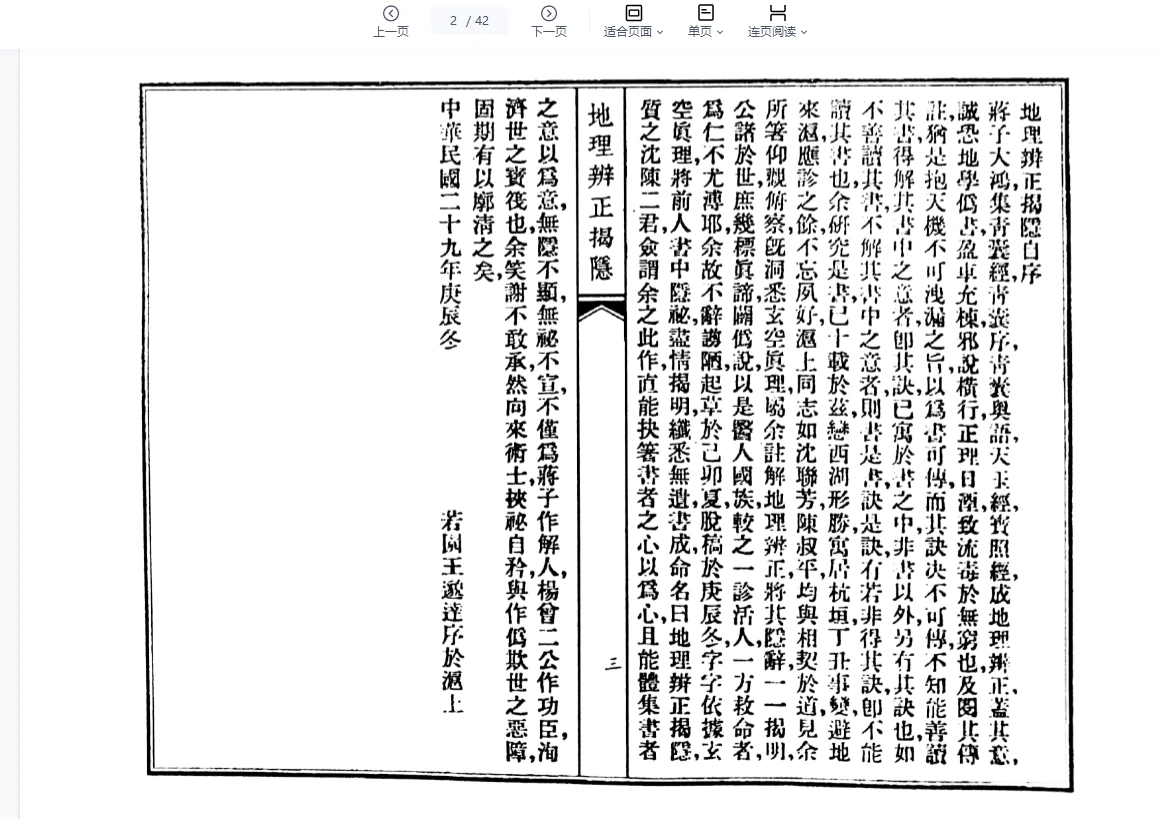 上一页
2 / 42
下一页
适合页面
单页
连页阅读
地理辨正揭隱自序
蔣子大鴻集靑囊經，靑囊序，靑囊奧語，天玉經，寶照經，成地理辨正，蓋其意，
誠恐地學僞書，盈車充棟，邪說橫行，正理日湮，致流毒於無窮也，及閱其傳
註，猶是抱天機不可洩漏之旨，以爲書可傳，而其訣决不可傳，不知能善讀
其書，得解其書中之意者，卽其訣已寓於書之中，非書以外，另有其訣也，如
不善讀其書，不解其書中之意者，則書是書，訣是訣，有若非得其訣，卽不能
讀其書也，余硏究是書，已十載於茲，戀西湖形勝，寓居杭垣，丁丑事變，避地
來滬，應診之餘，不忘夙好，滬上同志如沈聯芳，陳叔平，均與相契於道，見余
所箸仰觀俯察，旣洞悉玄空眞理，屬余註解地理辨正，將其隱辭，一一揭明，
公諸於世，庶幾標眞諦，闢僞說，以是醫人國族，較之一診活人，一方救命者，
爲仁不尤溥耶，余故不辭譾陋，起草於己卯夏，脫稿於庚辰冬，字字依據玄
空眞理，將前人書中隱祕，盡情揭明，纖悉無遺，書成，命名曰地理辨正揭隱，
質之沈陳二君，僉謂余之此作，直能抉箸書者之心以爲心，且能體集書者
地理辨正揭隱
三
之意以爲意，無隱不顯，無祕不宣，不僅爲蔣子作解人，楊曾二公作功臣，洵
濟世之寳筏也，余笑謝不敢承，然向來術士，挾祕自矜，與作僞欺世之惡障，
固期有以廓清之矣，
中華民國二十九年庚辰冬
若園王邈達序於滬上